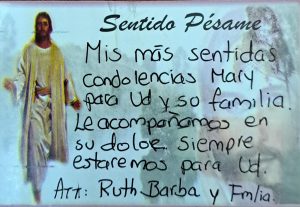 Sentido Pésame
Mis más sentidas
condolencias Mary
para Ud y su familia.
Le acompañamos en
su dolor siempre
estaremos para Ud.
Att: Ruth Barba y Fmlia.